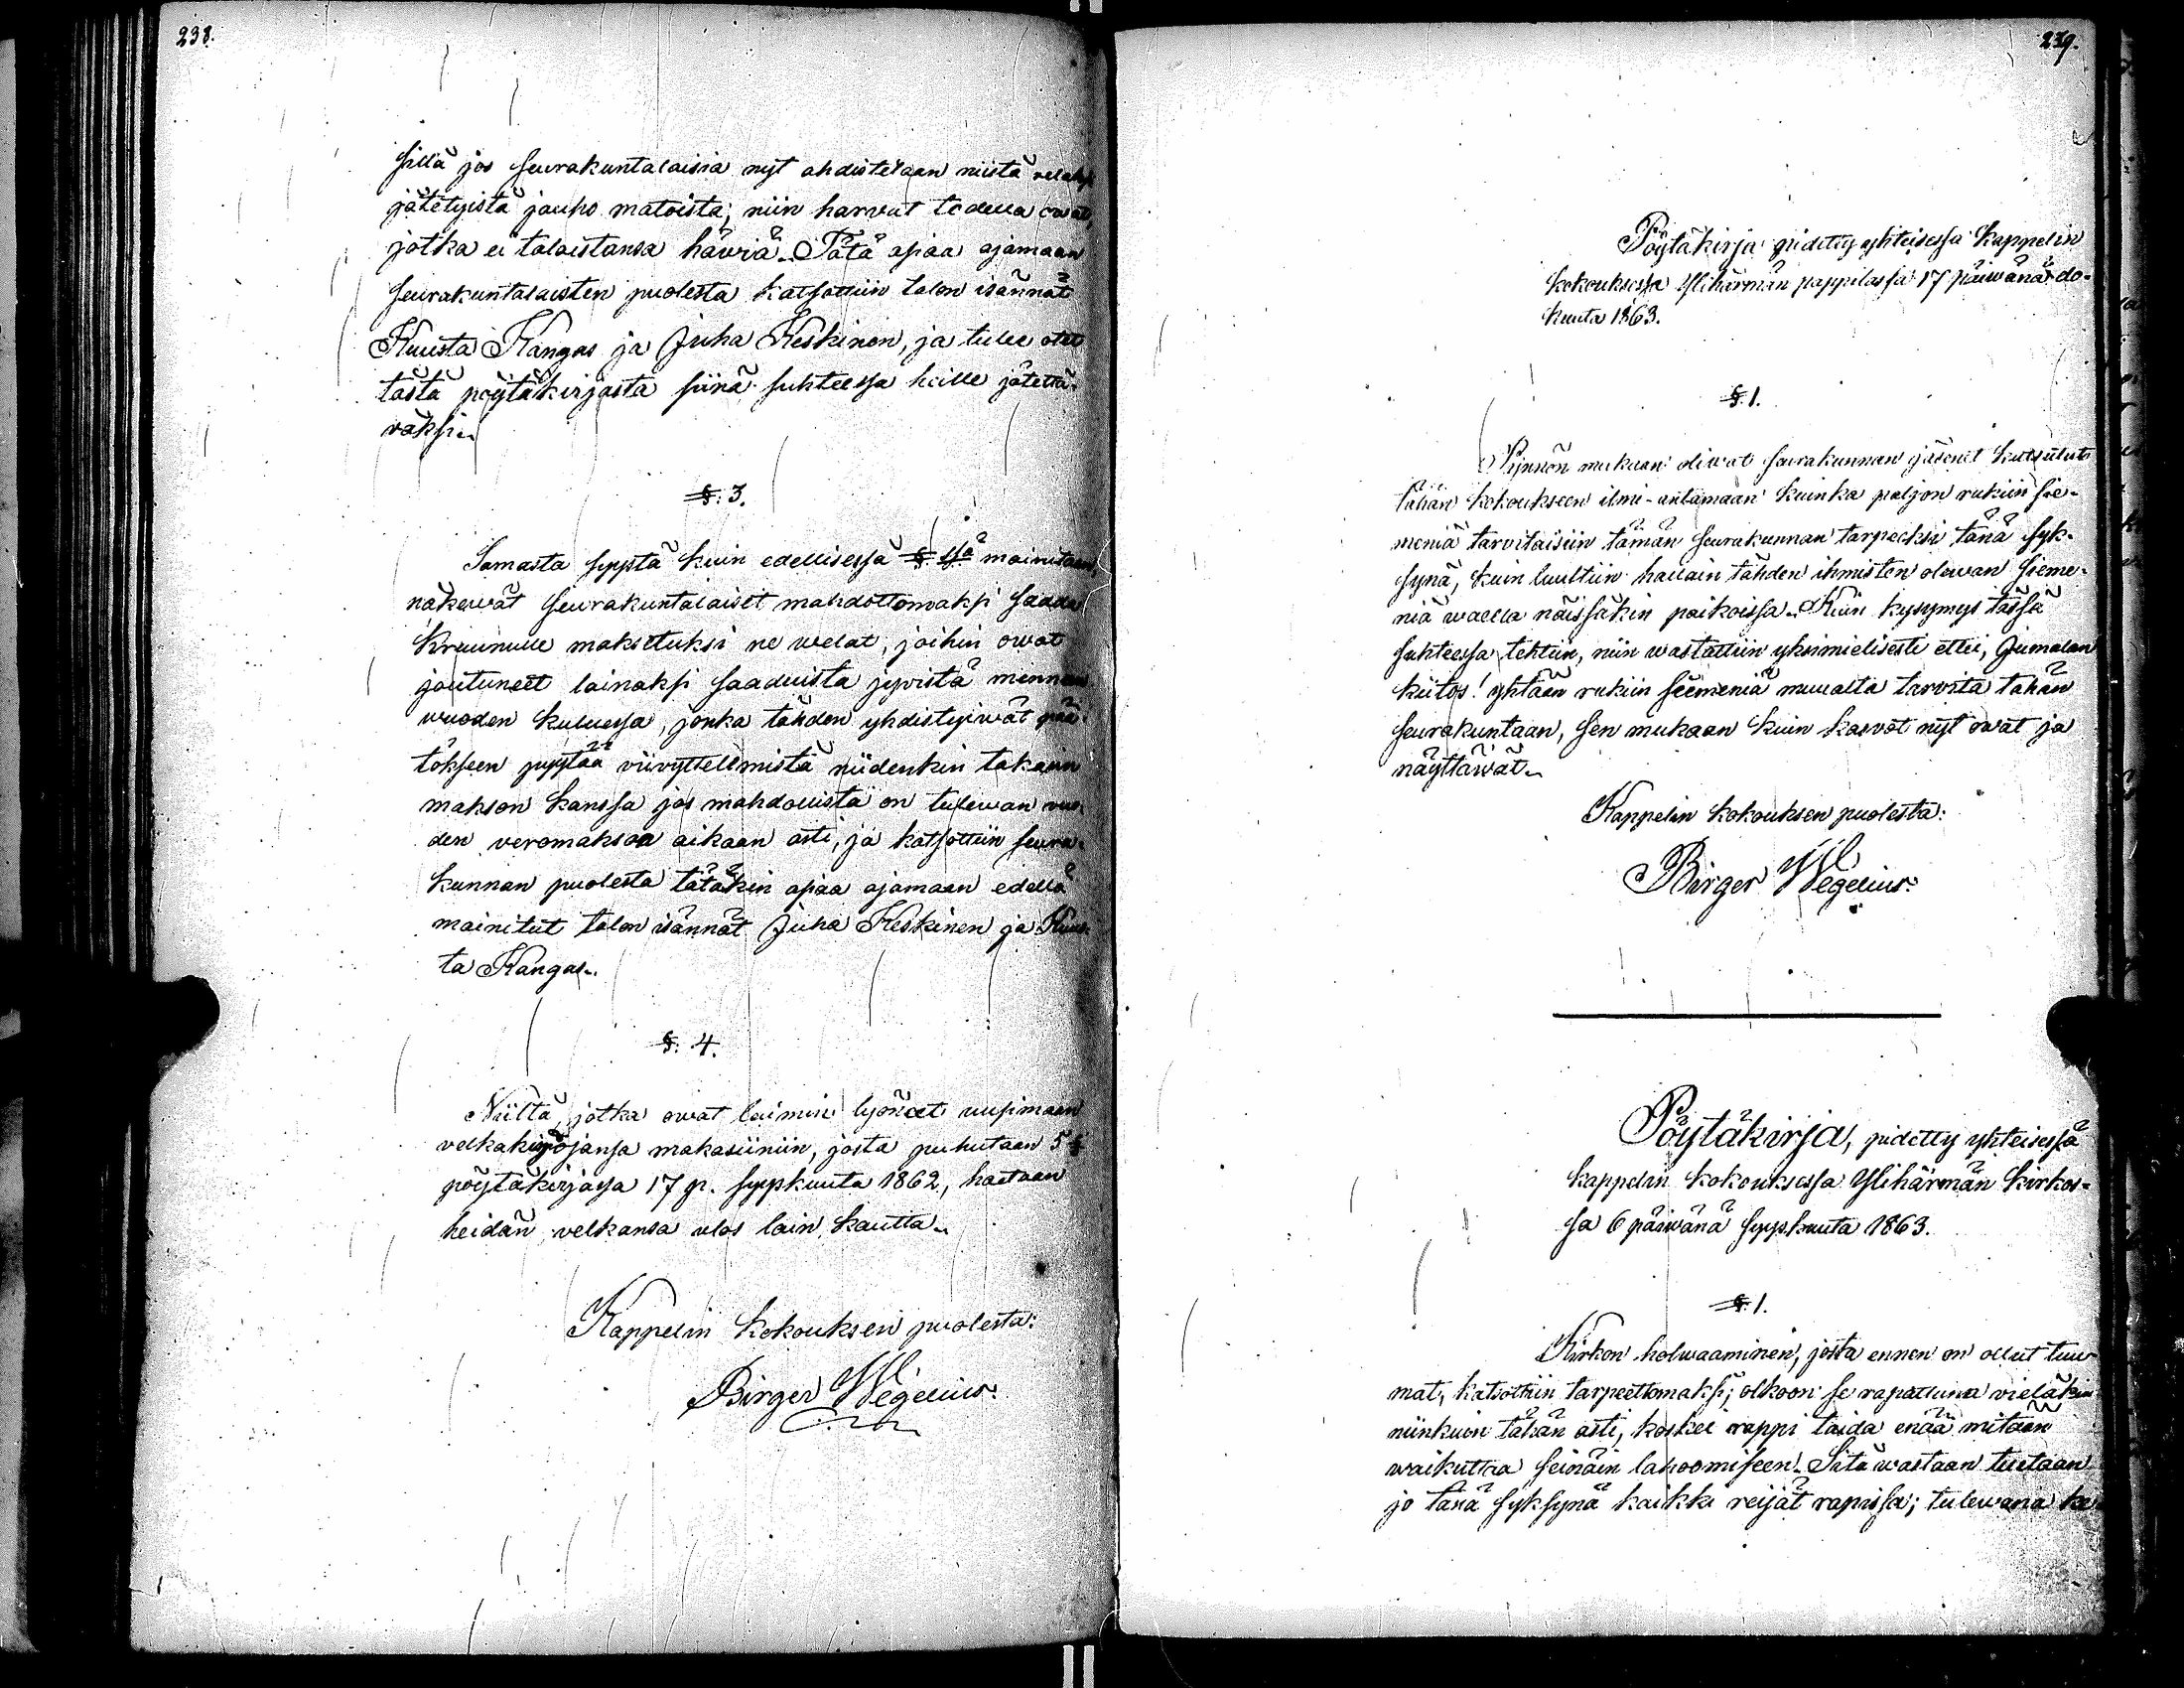 238.
sillä jos seurakuntalaisia nyt ahdistelaan niistä velaksi
jätetyistä jauho matoista; niin harvat todella owat,
jotka ei talaistansa häwiä. Tätä asiaa ajamaan
seurakuntalaisten puolesta katsottiin talon isännät
Kuusta Kangas ja Juha Keskinen, ja tulee otet
tästä pöytäkirjasta siinä suhteessa heille jätettä-
väksi.
§. 3.
Samasta syystä kuin edellisessä §. ssä mainitaan,
näkewät seurakuntalaiset mahdottomaksi saada
kruunulle maksetuksi ne welat, joihin owat
joutuneet lainaksi saaduista jywistä mennen
wuoden kuluessa, jonka tähden yhdistyiwät pää-
tökseen pyytää viivyttelemistä niidenkin takasin
makson kanssa jos mahdollista on tulewan vuo-
den veromakson aikaan asti, ja katsottiin seura-
kunnan puolesta tätäkin asiaa ajamaan edellä
mainitut talon isännät Juha Keskinen ja Kuus-
ta Kangas.
§. 4.
Niiltä, jotka owat laimin lyöneet uusimaan
velkakirjojansa makasiiniin, josta puhutaan 5 §
pöytäkirjassa 17 p. syyskuuta 1862, haetaan
heidän velkansa ulos lain kautta.
Kappelin kokouksen puolesta:
Birger Wegelius.
239.
Pöytäkirja pidetty yhteisessä kappelin
kokouksessa Ylihärmän pappilassa 17 päiwänä elo-
kuuta 1863.
§. 1.
Pijnnön mukaan oliwat seurakunnan jäsenet kutsutut
tähän kokoukseen ilmi-antamaan kuinka paljon rukiin sie-
meniä tarvitaisiin tämän seurakunnan tarpeeksi tänä syk-
synä, kuin luultiin hallain tähden ihmisten olewan sieme-
niä wailla näissäkin paikoissa. Kuin kysymys tässä
suhteessa tehtiin, niin wastattiin yksimielisesti ettei, Jumalan
kiitos! yhtään rukiin siemeniä muualta tarvita tähän
seurakuntaan, sen mukaan kuin kasvot nyt owat ja
näyttäwät.
Kappelin kokouksen puolesta:
Birger Wegelius.
Pöytäkirja, pidetty yhteisessä
kappelin kokouksessa Ylihärmän kirkos-
sa 6 päiwänä syyskuuta 1863.
§. 1.
Kirkon holwaaminen, josta ennen on ollut tuu-
mat, katsottiin tarpeettomaksi; olkoon se rapattuna vieläkin
niinkuin tähän asti, koskei rappi taida enää mitään
waikuttaa seinäin lahoomiseen. Sitä wastaan tuetaan
jo tänä syksynä kaikki reijät rapissa; tulewana ke-